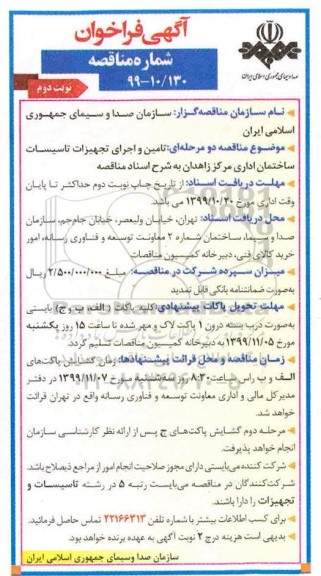 آگهی فراخوان
شماره مناقصه
۹۹-۱۰/۱۳۰
نوبت دوم
صدا و سیمای جمهوری اسلامی ایران
نام سازمان مناقصه‌گزار: سازمان صدا و سیمای جمهوری
اسلامی ایران
موضوع مناقصه دو مرحله‌ای: تامین و اجرای تجهیزات تاسیسات
ساختمان اداری مرکز زاهدان به شرح اسناد مناقصه
مهلت دریافت اسناد: از تاریخ چاپ نوبت دوم حداکثر تا پایان
وقت اداری مورخ ۱۳۹۹/۱۰/۲۰ می باشد.
محل دریافت اسناد: تهران، خیابان ولیعصر، خیابان جام‌جم، سازمان
صدا و سیما، ساختمان شماره ۲ معاونت توسعه و فناوری رسانه، امور
خرید کالای فنی، دبیرخانه کمیسیون مناقصات
میزان سپرده شرکت در مناقصه: مبلغ ۲/۵۰۰/۰۰۰/۰۰۰ ریال
به‌صورت ضمانتنامه بانکی قابل تمدید
مهلت تحویل پاکات پیشنهادی: کلیه پاکات (الف، ب و ج) بایستی
به‌صورت درب بسته درون ۱ پاکت لاک و مهر شده تا ساعت ۱۵ روز یکشنبه
مورخ ۱۳۹۹/۱۱/۰۵ به دبیرخانه کمیسیون مناقصات تسلیم گردد.
زمان مناقصه و محل قرائت پیشنهادها: زمان گشایش پاکت‌های
الف و ب راس ساعت ۸:۳۰ سه‌شنبه مورخ ۱۳۹۹/۱۱/۰۷ در دفتر
مدیرکل مالی و اداری معاونت توسعه و فناوری رسانه واقع در تهران قرائت
خواهد شد.
مرحله دوم گشایش پاکت‌های ج پس از ارائه نظر کارشناسی سازمان
انجام خواهد پذیرفت.
شرکت کننده می‌بایستی دارای مجوز صلاحیت انجام امور از مراجع ذیصلاح باشد.
شرکت‌کنندگان در مناقصه می‌بایست رتبه ۵ در رشته تاسیسات و
تجهیزات را دارا باشند.
برای کسب اطلاعات بیشتر با شماره تلفن ۲۲۱۶۶۳۱۳ تماس حاصل فرمائید.
بدیهی است هزینه درج ۲ نوبت آگهی به عهده برنده خواهد بود.
سازمان صدا و سیمای جمهوری اسلامی ایران